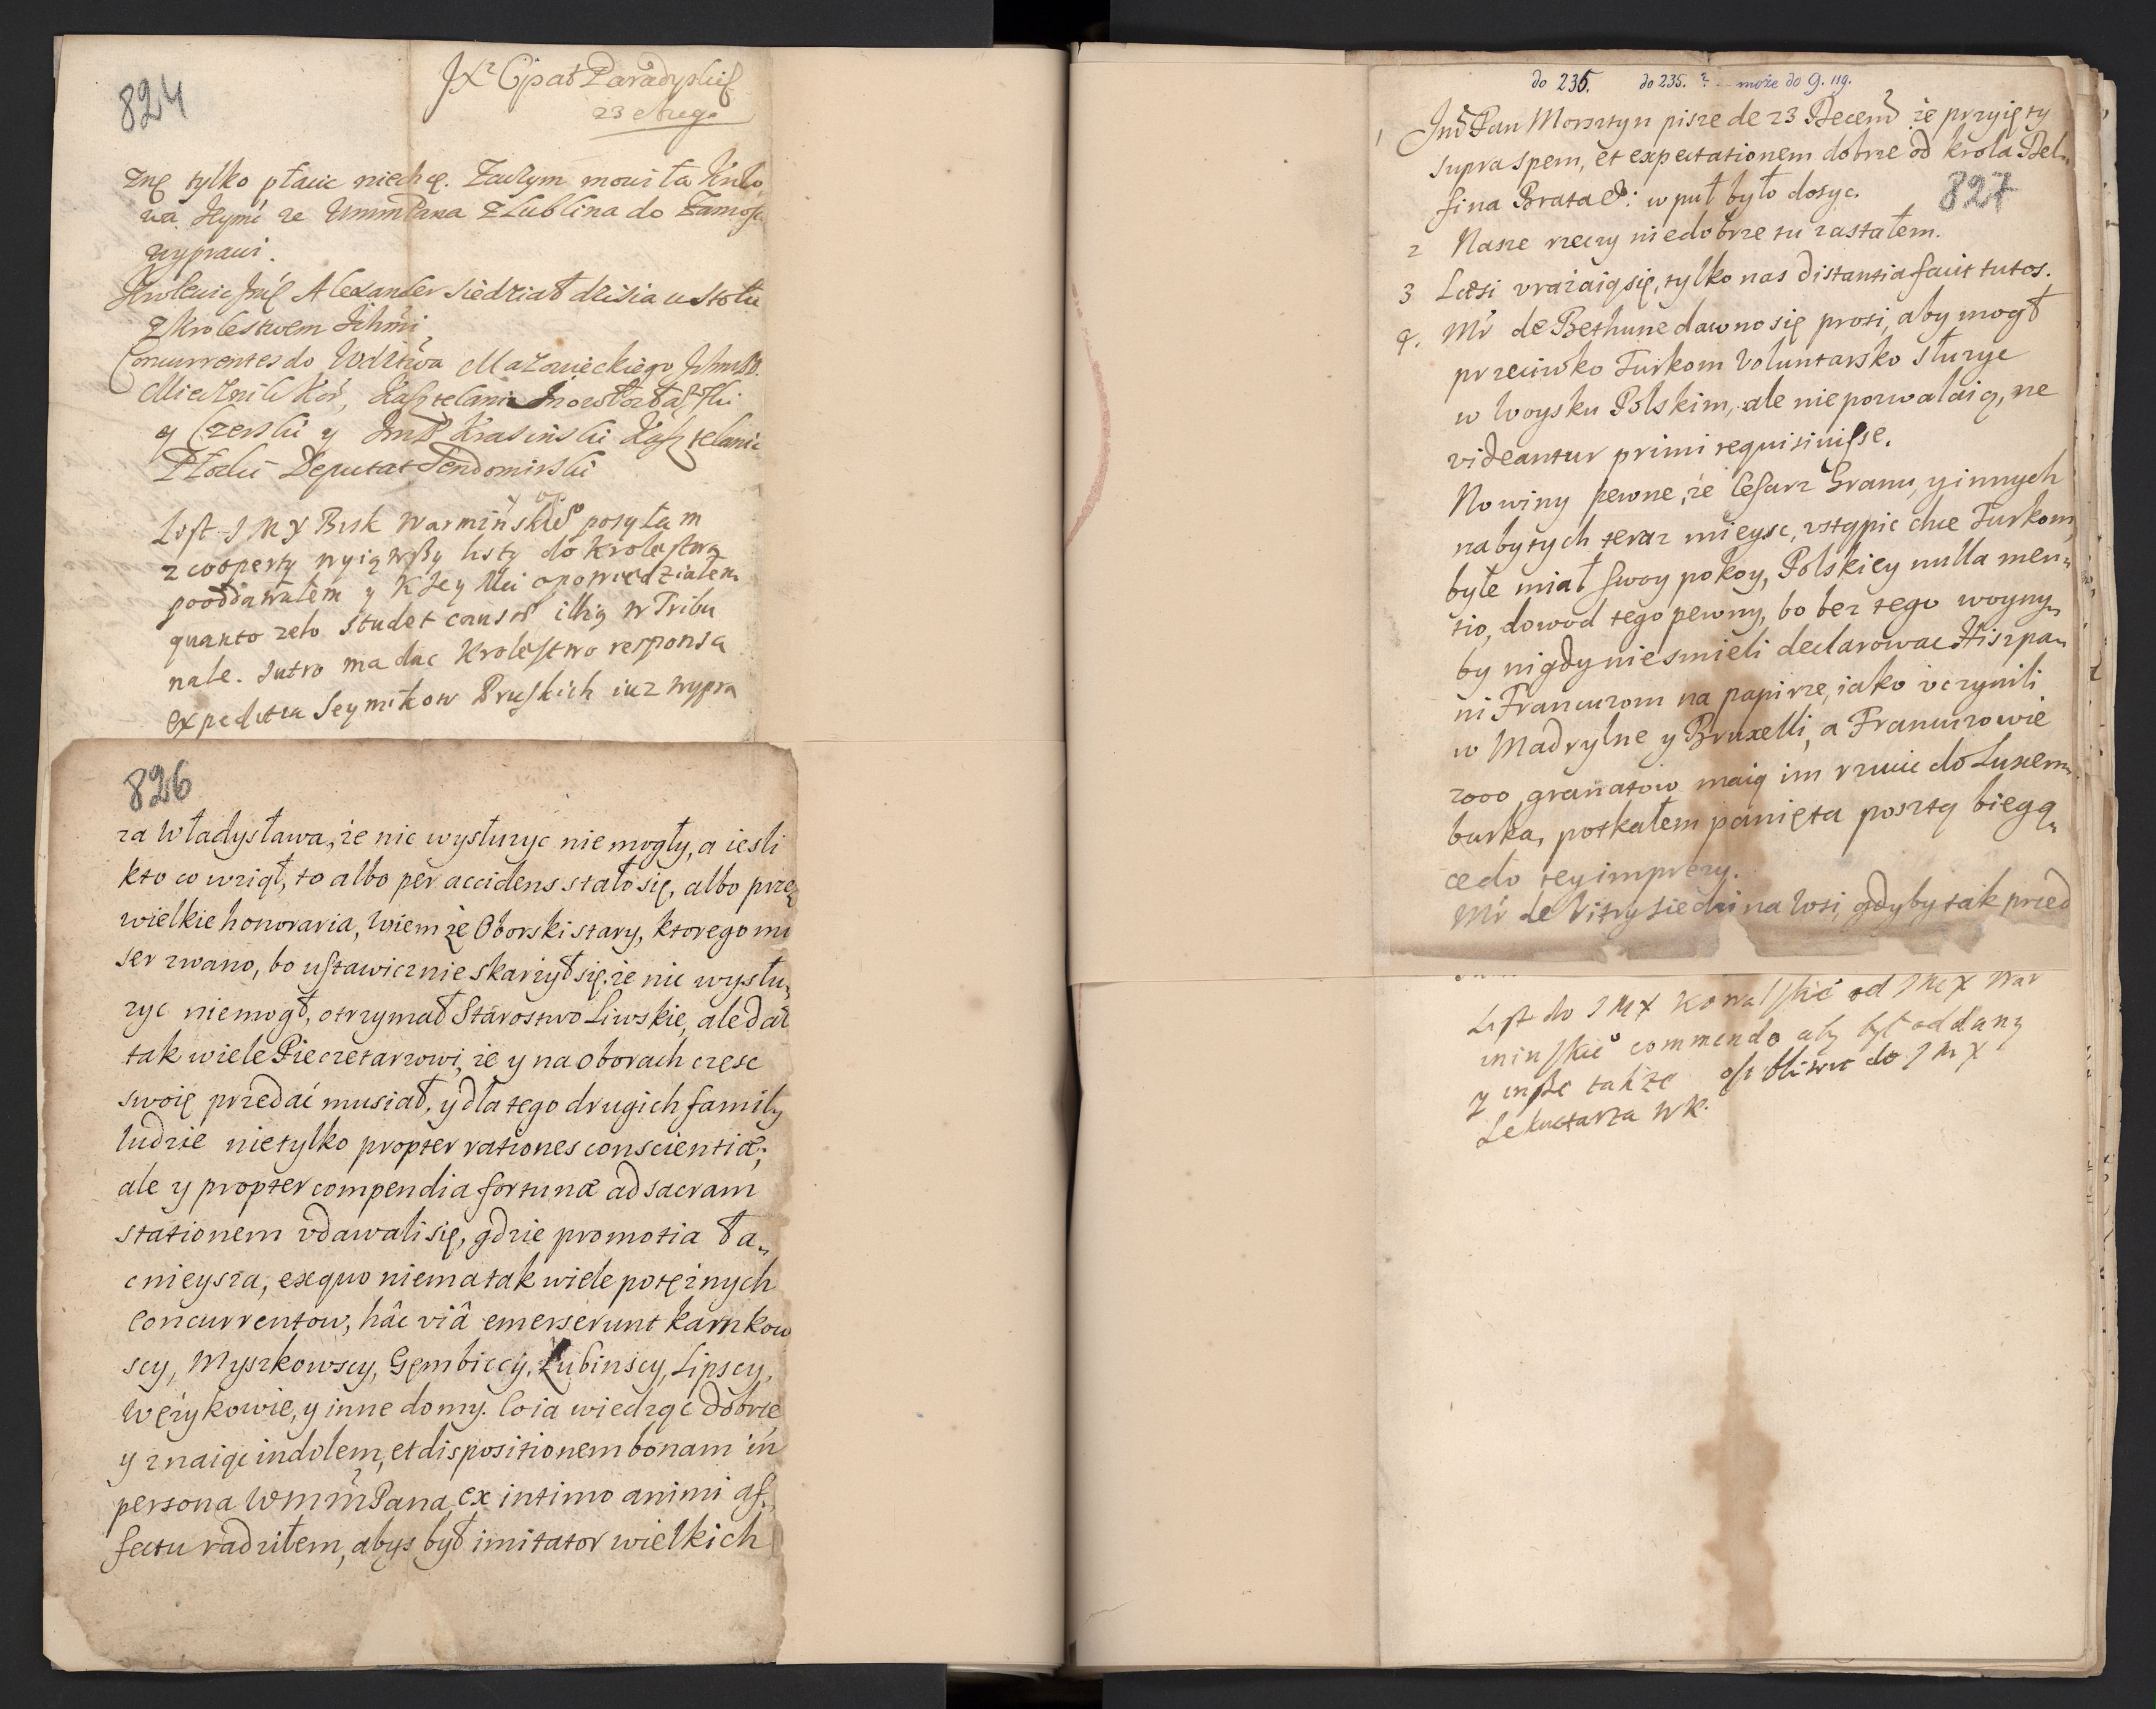 824
JX Opat Paradyski
23 Aug.
znę tylko płacic niechcę. Zaczym mowiła Krolo,
wa Jeymć ze WmmPana z Lublina do Zamosc
wyprawi.
Krolewic Jmć Alexander siedział dzisia u stołu
z Krolestwem Ichmci
Concurrentes do Wdztwa Mazowieckiego
Miecznik Kor, Kasztelanic
y Czerski y Krasinski Kasztelanic
Płocki Deputat Sendomirski
List J M X Bisk Warmińskie° posyłam
z cooperty wyiąwszy listy do Krolestwa
pooddawałem y K Jey Mci opowiedziałem
quanto zelo studet in Tribu
nale. Jutro ma dac Krolestwo responsa
expeditia Seymikow Pruskich iuz wypra
826
za Władysława, że nic wysłuzyc nie mogły, a iesli
kto co wziął, to albo per accidens stało się, albo przez
wielkie honoraria, Wiem że Oborski stary, ktorego mi
ser zwano, bo ustawicznie skarżył się, że nic wysłu,,
zyc niemogł, otrzymał Starostwo Liwskie, ale dał
tak wiele Pieczetarzowi, ze y na Oborach czesc
swoię przedać musiał, y dla tego drugich family
ludzie nietylko propter rationes conscientiæ;
ale y propter compendia fortunæ ad sacram
stationem vdawali się, gdzie promotia ła,,
cnieysza, ex quo niema tak wiele potężnych
concurrentow, hâc viâ emerserunt Karnkow
scy, Myszkowscy, Gembiccy, Łubinscy, Lipscy,
Wężykowie, y inne domy. Co ia wiedząc dobrze
y znaiąc indolem, et dispositionem bonam in
persona WmmPana, ex intimo animi af,,
fectu radziłem, abys był imitator wielkich
do 235. do 235. ? - może do 9. 119.
1 Jmć Pan Morsztyn pisze de 23 Decemb że przyięty
supra spem, et expectationem dobrze od krola Del,,
fina Brata &: w puł było dosyc.
827
2 Nasze rzeczy niedobrze tu zastałem.
3 Læsi vrażaią się, tylko nas distantia facit tutos.
4. Mr de Bethune dawno się prosi, aby mogł
przeciwko Turkom Voluntarsko słuzyc
w Woysku Polskim, ale nie pozwalaią, ne
videantur primi requisivisse.
Nowiny pewne, że Cesarz Granu, y innych
nabytych teraz mieysc, vstąpic chce Turkom,
byle miał swoy pokoy, Polskiey nulla men,,
tio, dowod tego pewny, bo bez tego woyny,,
by nigdy niesmieli declarowac Hiszpa,,
ni Francuzom na papirze, iako vczynili
w Madrylne y Bruxelli, a Francuzowie
2000 granatow maią im rzucic do Luxem,,
burka, potkałem panięta posztą biegą,,
ce do tey imprezy.
Mr de Vitry siedzi na Wsi, gdyby tak przed
List do J M X Kowalskie° od J M X War
minskie° commendo aby był oddany
y insze takze osobliwie do J M X
Sekretarza WK.